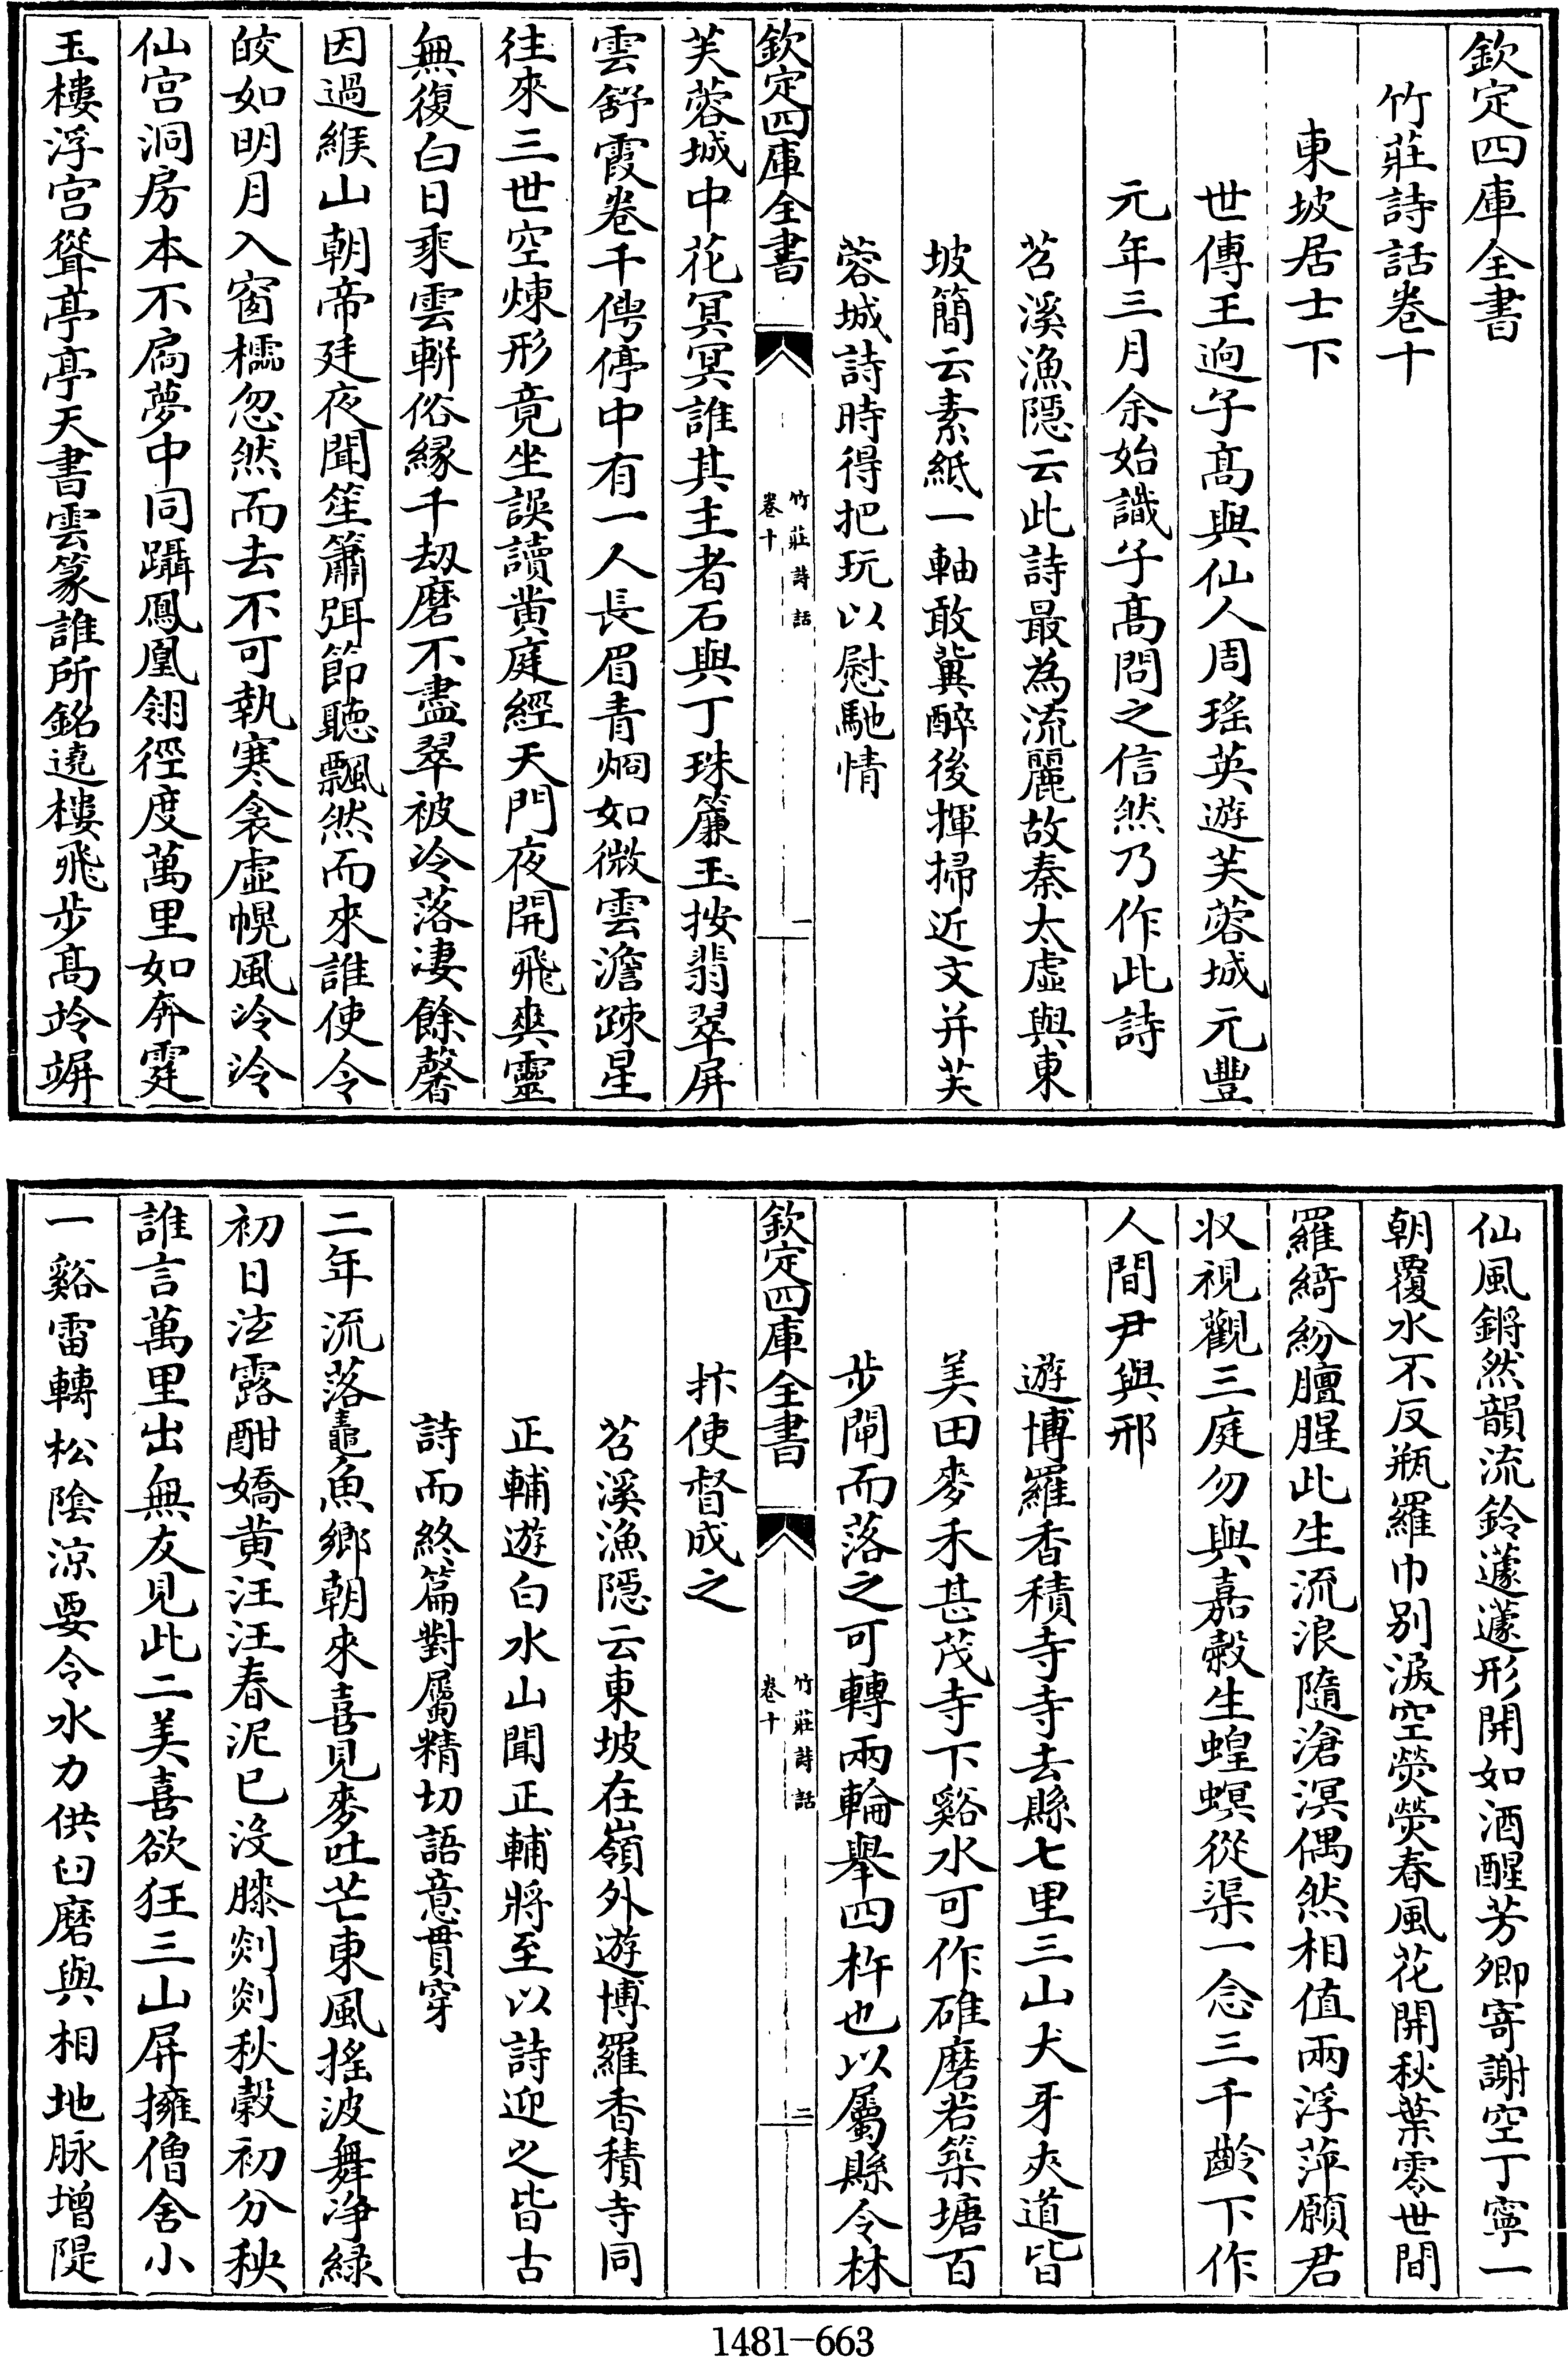 欽定四庫全書
竹莊詩話卷十
東坡居士下
世傳王逈子髙與仙人周瑤英遊芙蓉城元豐
元年三月余始識子髙問之信然乃作此詩
苕溪漁隱云此詩最為流麗故秦太虚與東
坡簡云素紙一軸敢冀醉後揮掃近文并芙
蓉城詩時得把玩以慰馳情
欽定四庫全書
竹莊詩話
卷十
一
芙蓉城中花冥冥誰其主者石與丁珠簾玉按翡翠屏
雲舒霞卷千俜停中有一人長眉青炯如微雲澹疎星
往來三世空煉形竟坐誤讀黄庭經天門夜開飛爽靈
無復白日乘雲輧俗縁千刼磨不盡翠被冷落凄餘馨
因過緱山朝帝廷夜聞笙簫弭節聽飄然而來誰使令
皎如明月入窗櫺忽然而去不可執寒衾虚幌風泠泠
仙宫洞房本不扃夢中同躡鳳凰翎徑度萬里如奔霆
玉樓浮宫聳亭亭天書雲篆誰所銘遶樓飛步髙竛竮
仙風鏘然韻流鈴蘧蘧形開如酒醒芳卿寄謝空丁寧一
朝覆水不反瓶羅巾别淚空熒熒春風花開秋葉零世間
羅綺紛膻腥此生流浪隨滄溟偶然相值兩浮萍願君
收視觀三庭勿與嘉穀生蝗螟從渠一念三千齡下作
人間尹與邢
遊博羅香積寺寺去縣七里三山犬牙夾道皆
美田麥禾甚茂寺下谿水可作碓磨若築塘百
步閘而落之可轉兩輪舉四杵也以屬縣令林
欽定四庫全書
竹莊詩話
卷十
二
抃使督成之
苕溪漁隱云東坡在嶺外遊博羅香積寺同
正輔遊白水山聞正輔將至以詩迎之皆古
詩而終篇對屬精切語意貫穿
二年流落鼃魚鄉朝來喜見麥吐芒東風搖波舞浄緑
初日泫露酣嬌黄汪汪春泥已沒膝剡剡秋穀初分秧
誰言萬里出無友見此二美喜欲狂三山屏擁僧舍小
一谿雷轉松陰涼要令水力供臼磨與相地脉增隄